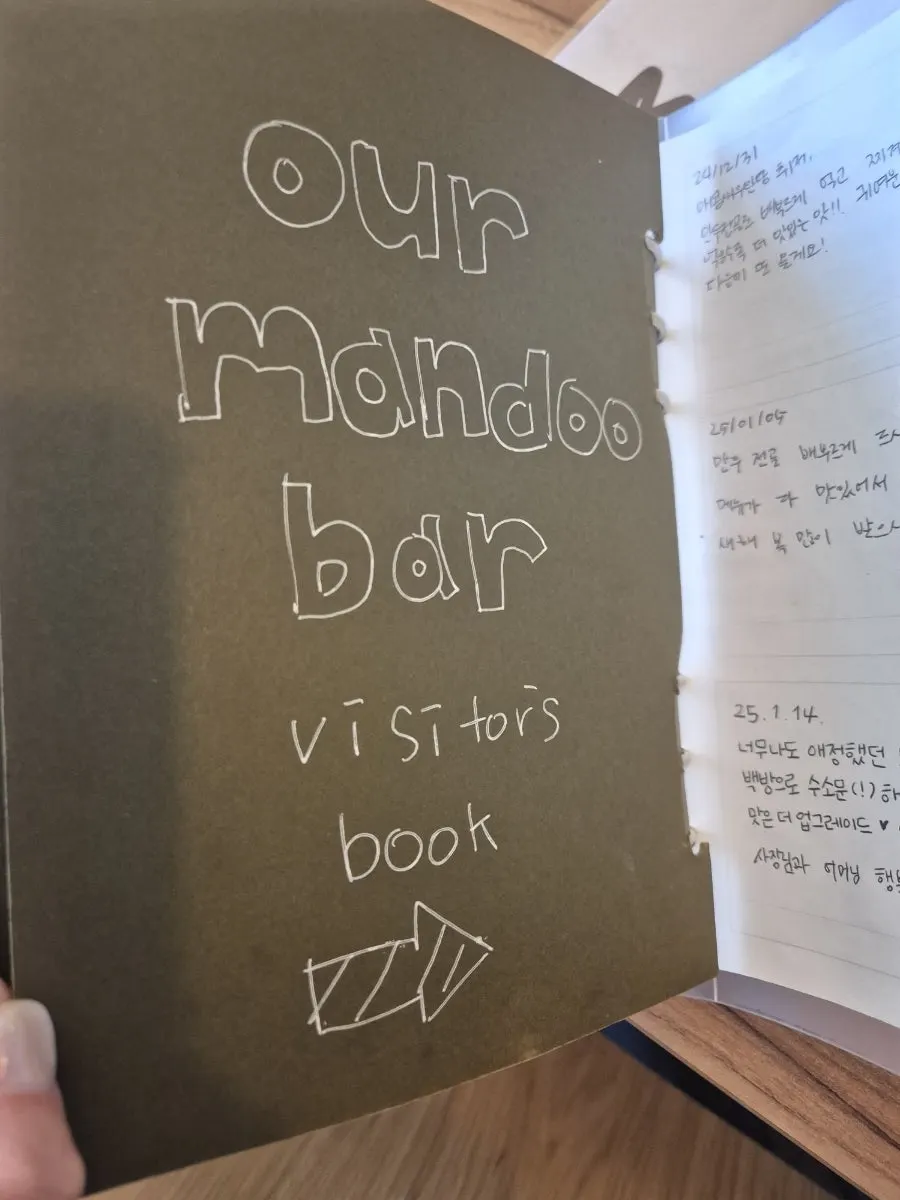 our
mandoo
bar
visitors
book
24/12/31
배부르게 먹고
더 맛있는 맛!! 귀여운
다음에 또 올게요!
25/01/05
만두 전골 배부르게 드시
메뉴가 다 맛있어서
새해 복 많이 받으
25.1.14.
너무나도 애정했던
백방으로 수소문(!) 하
맛은 더 업그레이드 ♥
사장님과 어머님 행복